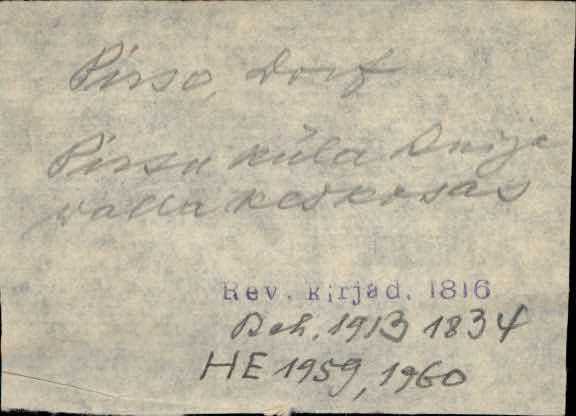 Pirso, Dorf
Pirsu küla
valla keskosas
Rev. kirjad, 1816
Beh. 1913 1834
HE 1959, 1960